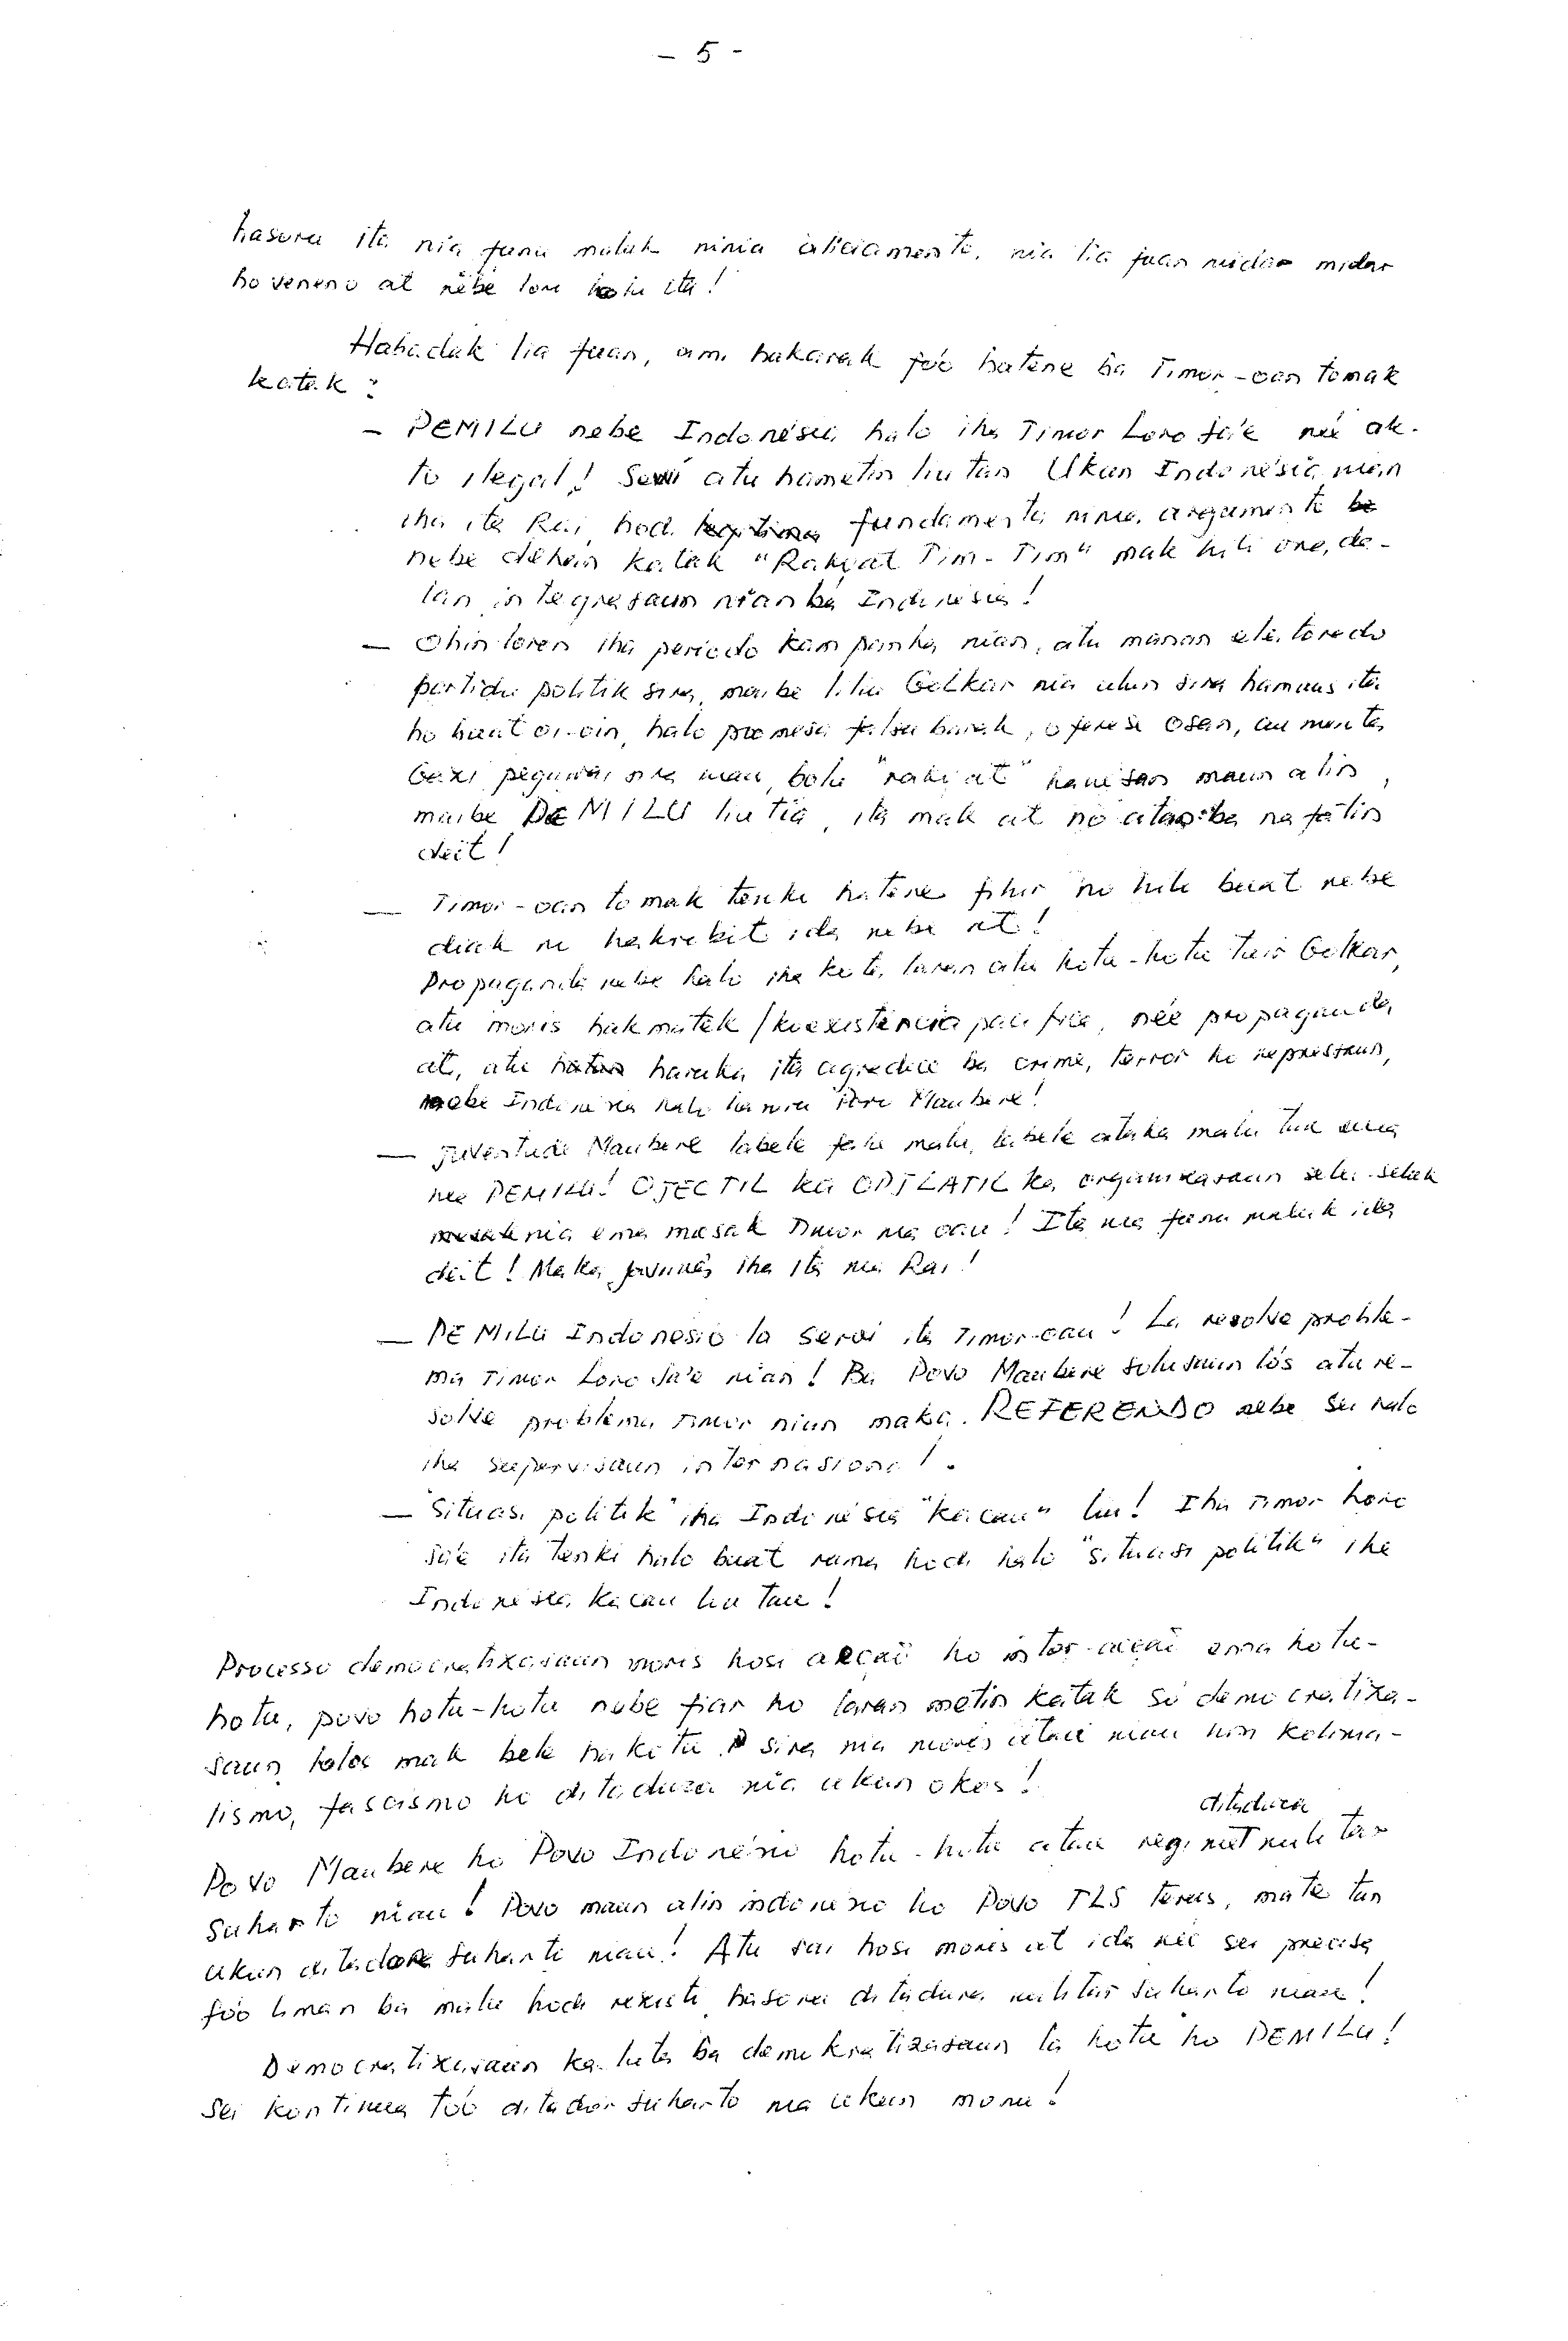 - 5 -
hasoru ita nia funu maluk ninia aliciamento, nia lia fuan midar midar
ho veneno at nebe lori hohu ita!
Habadak lia fuan, ami hakarak fo'o hatene ba Timor-oan tomak
katak:
- PEMILU nebe Indonésia halo iha Timor Loro Sa'e neé ak-
to ilegal! Servi atu hametin liu tan Ukun Indonésia nian
iha ita Rai, hodi fundamenta ninia argumento
nebe dehan katak "Rakyat Tim-Tim" mak hili ona, da-
lan integrasaun nian ba Indonésia!
- Ohin loron iha periodo kampanha nian, atu manan eleitorado
partidu politik sira, maibe liliu Golkar nia ulun sira hamaus ita
ho buat oi-oin, halo promesa falsa barak, oferese osan, aumenta
Gaji pegawai sira nian, bolu "rakyat" hanesan maun alin,
maibe PEMILU liu tia, ita mak at no atan ba nafatin
deit!
- Timor-oan tomak tenki hatene fihir no hili buat nebe
diak no hakribit ida nebe at!
Propaganda nebe halo iha kota laran atu hotu-hotu tuir Golkar,
atu moris hakmatek / koexistencia pacifica, neé propaganda
at, atu haruka ita agradece ba crime, terror ho repressaun,
nebe Indonesia halo hasoru Povo Maubere!
- Juventude Maubere labele fahe malu, labele ataka malu tan deit
nee PEMILU! OJECTIL ka OPJLATIL ka organizasaun selu-seluk
nia ema masak Timor nia oan! Ita nia funu maluk ida
deit! Maka javanês iha ita nia Rai!
- PEMILU Indonesio la servi ita Timor-oan! La resolve proble-
ma Timor Loro Sa'e nian! Ba Povo Maubere solusaun lo's atu re-
solve problema Timor nian maka REFERENDO nebe sei halo
iha supervisaun internasional.
- "Situasi politik" iha Indonésia "kacau" liu! Iha Timor Loro
Sa'e ita tenki halo buat ruma hodi halo "situasi politik" iha
Indonésia kacau liu tan!
Processo democratizasaun moris hosi acçaõ ho inter-acçaõ ema hotu-
hotu, povo hotu-hotu nebe fiar ho laran metin katak só democratiza-
saun loloos mak bele hakotu sira nia moris atan nian husi kolonia-
lismo, fascismo ho ditadura nia ukun okos!
Povo Maubere ho Povo Indonésio hotu-hotu atan regime ditadura militar
Suharto nian! Povo maun alin indonesio ho Povo TLS terus, mate tan
ukun ditadora Suharto nian! Atu sai hosi moris at ida neé sei precisa
fo'o liman ba malu hodi resiste hasoru ditadura militar Suharto nian!
Democratizasaun ka luta ba demokratizasaun la hotu ho PEMILU!
Sei kontinua to'o ditador Suharto nia ukun monu!